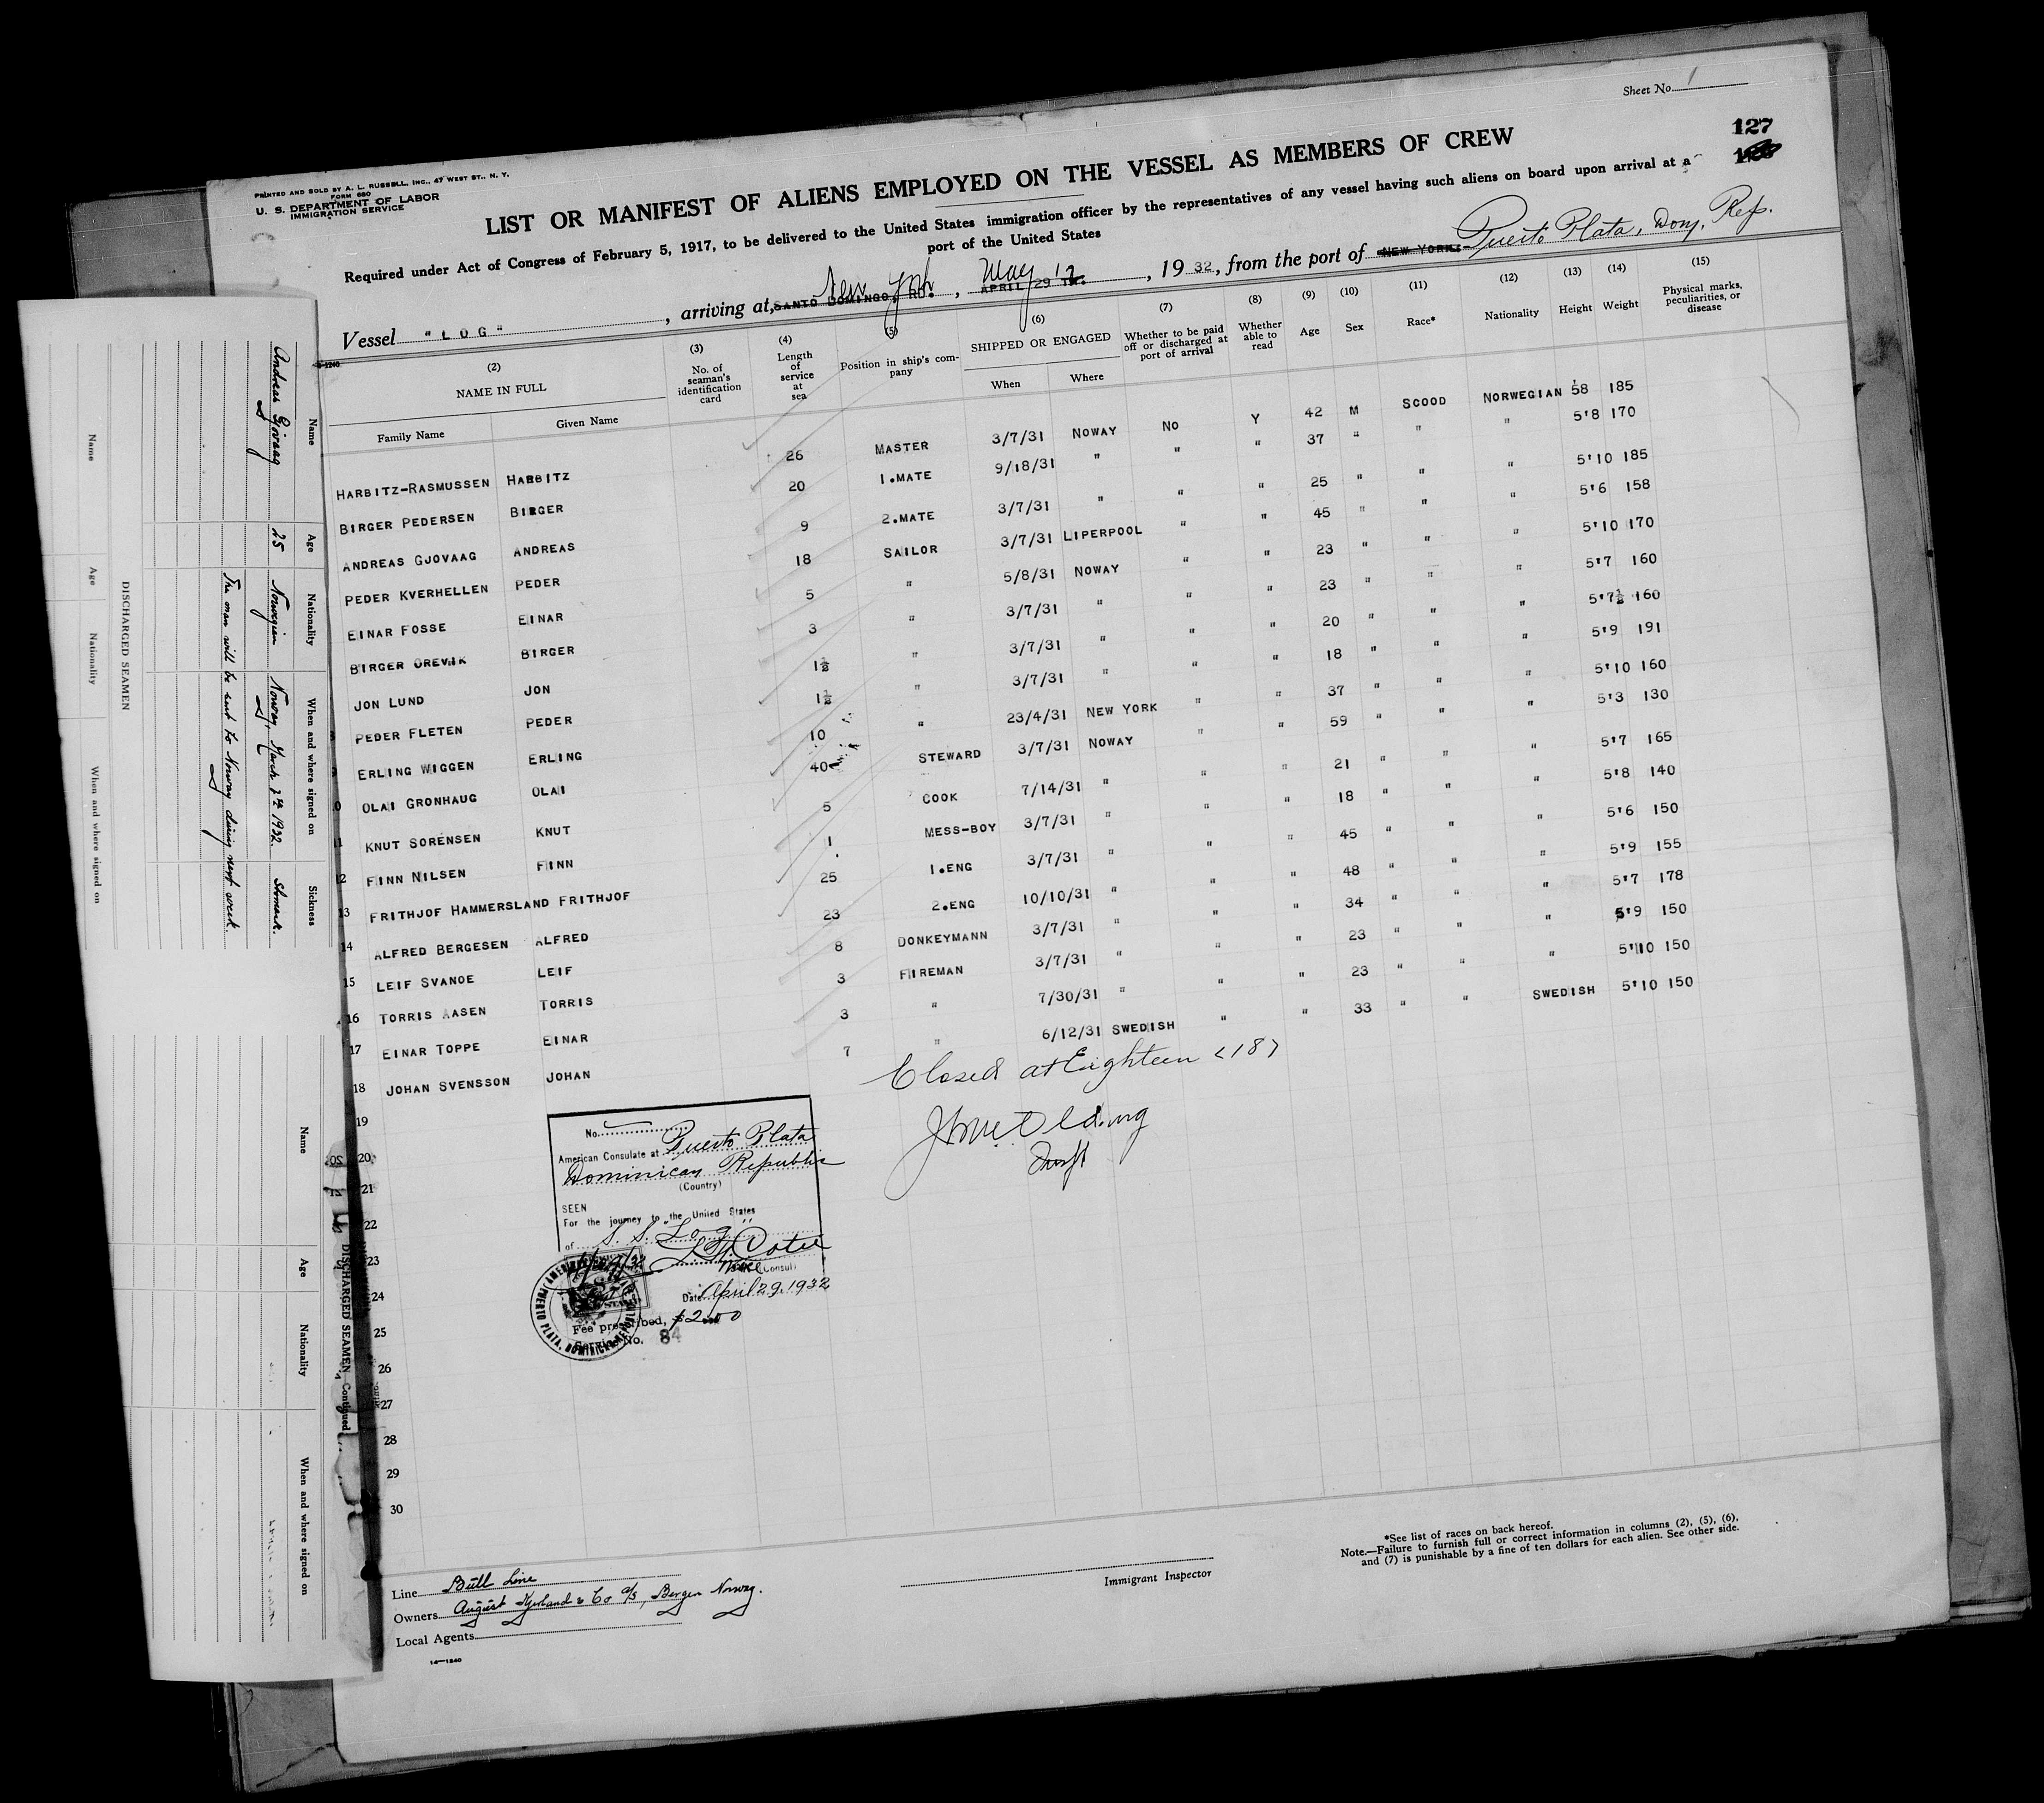 Sheet No. 1
127
PRINTED AND SOLD BY A. L. RUSSELL, INC., 47 WEST ST., N. Y.
FORM 680
U. S. DEPARTMENT OF LABOR
IMMIGRATION SERVICE
LIST OR MANIFEST OF ALIENS EMPLOYED ON THE VESSEL AS MEMBERS OF CREW
Required under Act of Congress of February 5, 1917, to be delivered to the United States immigration officer by the representatives of any vessel having such aliens on board upon arrival at a
port of the United States
Vessel "LOG", arriving at SANTO DOMINGO, RD. New York, APRIL 29 TH. May 12, 1932, from the port of NEW YORK. Puerto Plata, Dom. Rep.
(2) (3) (4) (5) (6) (7) (8) (9) (10) (11) (12) (13) (14) (15)
NAME IN FULL No. of seaman's identification card Length of service at sea Position in ship's company SHIPPED OR ENGAGED Whether to be paid off or discharged at port of arrival Whether able to read Age Sex Race* Nationality Height Weight Physical marks, peculiarities, or disease
Family Name Given Name When Where
HARBITZ-RASMUSSEN HARBITZ 26 MASTER 3/7/31 NOWAY No Y 42 M SCOOD NORWEGIAN 5'8 185
BIRGER PEDERSEN BIRGER 20 1.MATE 9/18/31 " " " 37 " " " 5'8 170
ANDREAS GJOVAAG ANDREAS 9 2.MATE 3/7/31 " " " 25 " " " 5'10 185
PEDER KVERHELLEN PEDER 18 SAILOR 3/7/31 LIPERPOOL " " 45 " " " 5'6 158
EINAR FOSSE EINAR 5 " 5/8/31 NOWAY " " 23 " " " 5'10 170
BIRGER OREVIK BIRGER 3 " 3/7/31 " " " 23 " " " 5'7 160
JON LUND JON 1½ " 3/7/31 " " " 20 " " " 5'7½ 160
PEDER FLETEN PEDER 1½ " 3/7/31 " " " 18 " " " 5'9 191
ERLING WIGGEN ERLING 10 " 23/4/31 NEW YORK " " 37 " " " 5'10 160
OLAI GRONHAUG OLAI 40 STEWARD 3/7/31 NOWAY " " 59 " " " 5'3 130
11 KNUT SORENSEN KNUT 5 COOK 7/14/31 " " " 21 " " " 5'7 165
12 FINN NILSEN FINN 1 MESS-BOY 3/7/31 " " " 18 " " " 5'8 140
13 FRITHJOF HAMMERSLAND FRITHJOF 25 1.ENG 3/7/31 " " " 45 " " " 5'6 150
14 ALFRED BERGESEN ALFRED 23 2.ENG 10/10/31 " " " 48 " " " 5'9 155
15 LEIF SVANOE LEIF 8 DONKEYMANN 3/7/31 " " " 34 " " " 5'7 178
16 TORRIS AASEN TORRIS 3 FIREMAN 3/7/31 " " " 23 " " " 5'9 150
17 EINAR TOPPE EINAR 3 " 7/30/31 " " " 23 " " " 5'10 150
18 JOHAN SVENSSON JOHAN 7 " 6/12/31 SWEDISH " " 33 " " SWEDISH 5'10 150
Closed at Eighteen <18>
19
20
21
22
23
24
25
26
27
28
29
30
No.
American Consulate at Puerto Plata
Dominican Republic
(Country)
SEEN
For the journey to the United States
of S. S. "Log"
Vice (Consul)
Date April 29, 1932
Fee prescribed, $2.00
Service No. 84
Line Bull Line
Owners August Kjerland & Co a/s, Bergen Norway.
Local Agents
14—1240
Immigrant Inspector
*See list of races on back hereof.
Note.—Failure to furnish full or correct information in columns (2), (5), (6),
and (7) is punishable by a fine of ten dollars for each alien. See other side.
Name Age Nationality When and where signed on Sickness
Andreas Gjovaag 25 Norwegian Norway, March 7th 1932. Stomach.
The man will be sent to Norway during next week.
DISCHARGED SEAMEN
Name Age Nationality When and where signed on
Name Age Nationality When and where signed on
DISCHARGED SEAMEN Continued